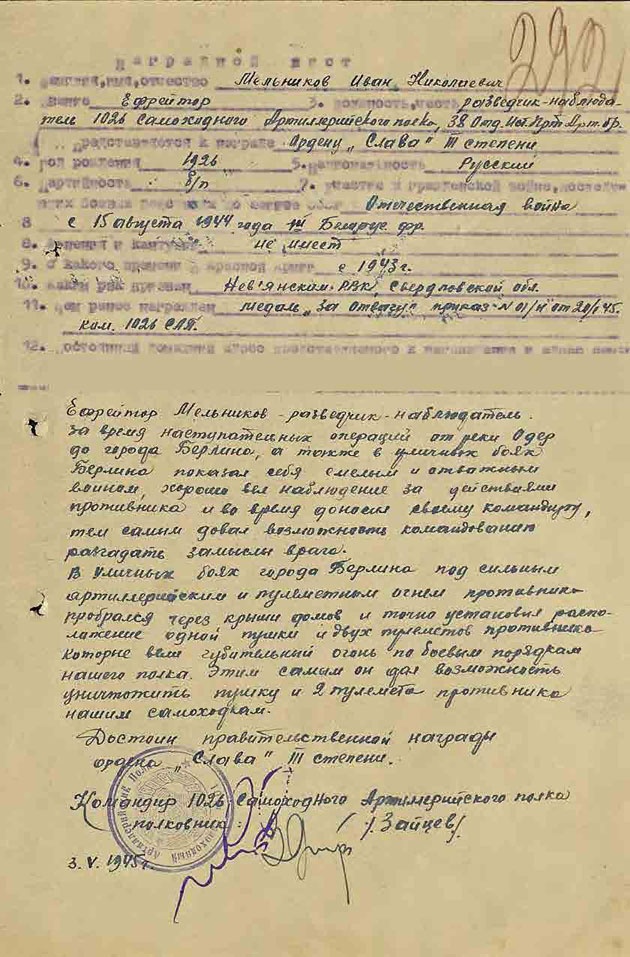 292
НАГРАДНОЙ ЛИСТ
1. Фамилия, имя, отчество Мельников Иван Николаевич
2. Звание Ефрейтор 3. Должность, часть разведчик-наблюда-
тель 1026 Самоходного Артиллерийского полка, 38 Отд. Ист. Прт. Арт. бр.
Представляется к награде Ордену „Слава" III степени
4. Год рождения 1926 5. Национальность Русский
6. Партийность б/п 7. Участие в гражданской войне, последую-
щих боевых Отечественная война
8 с 15 августа 1944 года 1й Беларус фр.
8. Ранения и контузии не имеет
9. С какого времени в Красной Армии с 1943 г.
10. Каким РВК призван Невьянским РВК, Свердловской обл.
11. Чем ранее награжден медаль „За Отвагу" приказ N 01/Н от 20/I 45.
ком. 1026 САП.
12.
Ефрейтор Мельников - разведчик-наблюдатель.
За время наступательных операций от реки Одер
до города Берлина, а также в уличных боях
Берлина показал себя смелым и отважным
воином, хорошо вел наблюдение за действиями
противника и во время доносил своему командиру,
тем самим довал возможность командованию
разгадать замыслы врага.
В уличных боях города Берлина под сильным
артиллерийским и пулеметным огнем противника
пробрался через крыши домов и точно установил распо-
ложение одной пушки и двух пулеметов противника
которые вели губительный огонь по боевым порядкам
нашего полка. Этим самым он дал возможность
уничтожить пушку и 2 пулемета противника
нашим самоходкам.
Достоин правительственной награды
ордена „Слава" III степени.
Командир 1026 Самоходного Артиллерийского полка
полковник: /Зайцев/.
3.V.1945г.